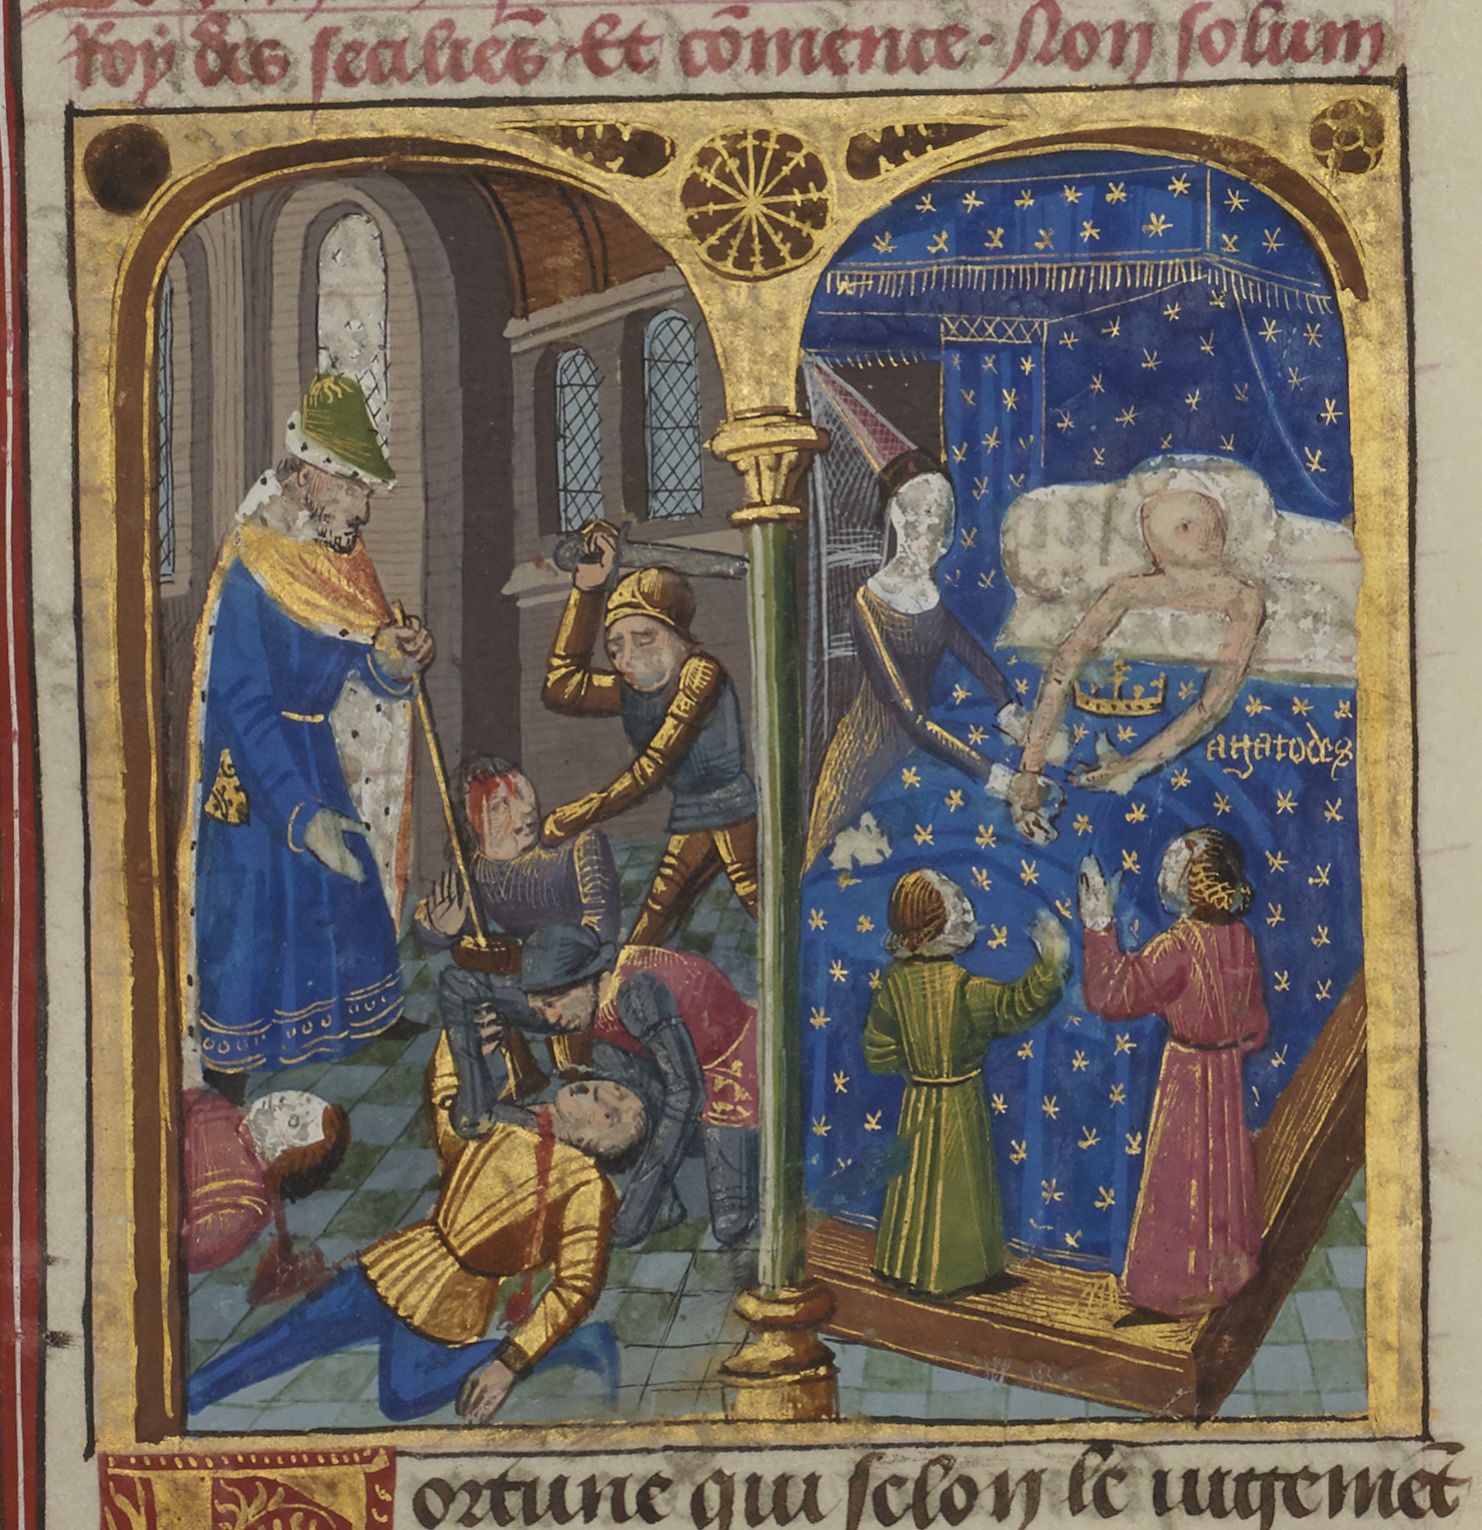 Roy des seciliēs · Et cōmence · Non solum
agatocles
Fortune qui selon le iugemēt